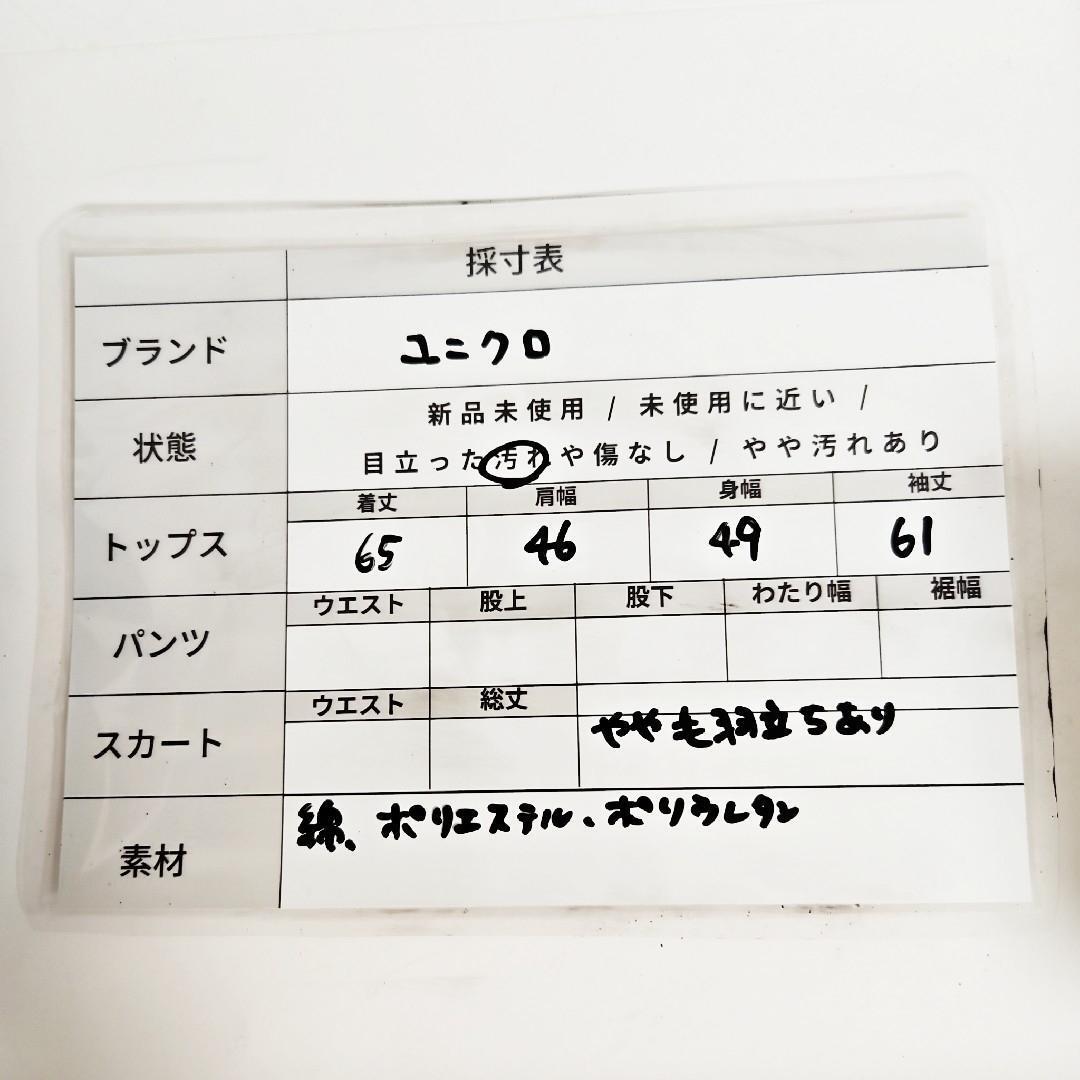 採寸表
ブランド ユニクロ
新品未使用 / 未使用に近い /
状態
目立った汚れや傷なし / やや汚れあり
着丈 肩幅 身幅 袖丈
トップス 65 46 49 61
ウエスト 股上 股下 わたり幅 裾幅
パンツ
ウエスト 総丈
スカート やや毛羽立ちあり
綿、ポリエステル、ポリウレタン
素材